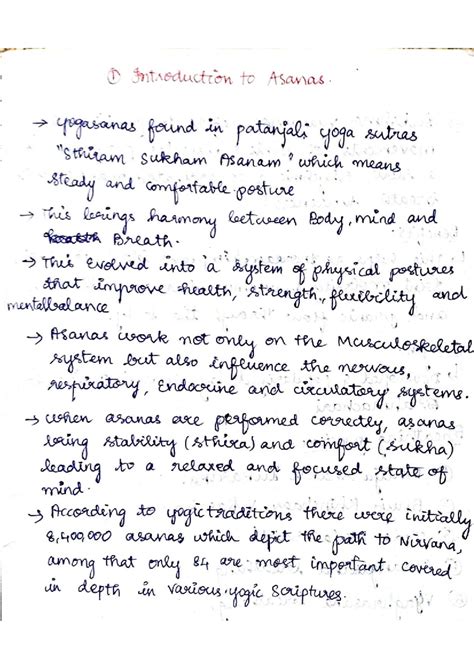 ① Introduction to Asanas.
→ yogasanas found in patanjali yoga sutras
"Sthiram Sukham Asanam" which means
steady and comfortable posture
→ This brings harmony between Body, mind and
health Breath.
→ This Evolved into a system of physical postures
that improve health, strength, flexibility and
mentalbalance
→ Asanas work not only on the Musculoskeletal
system but also influence the nervous,
respiratory, Endocrine and circulatory systems.
→ when asanas are performed correctly, asanas
bring stability (sthira) and comfort (sukha)
leading to a relaxed and focused state of
mind.
→ According to yogic traditions there were initially
8,400,000 asanas which depict the path to Nirvana,
among that only 84 are most important covered
in depth in various yogic Scriptures.